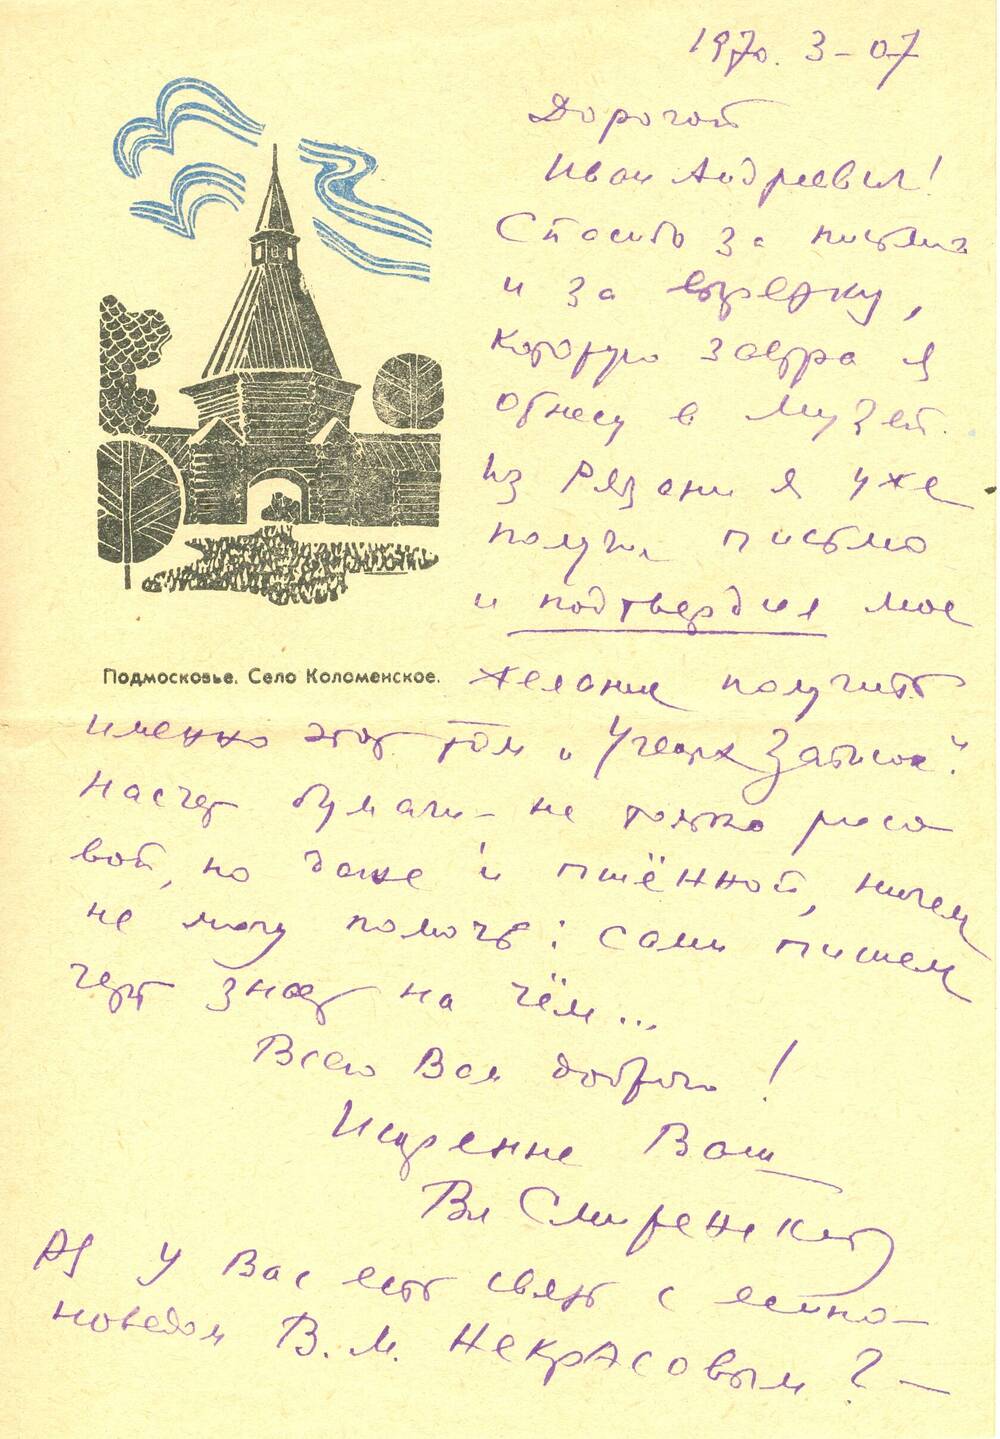 1970. 3-07
Дорогой
Иван Андреевич!
Спасибо за письмо
и за вырезку,
которую завтра я
отнесу в музей.
Из Рязани я уже
получил письмо
и подтвердил мое
Подмосковье. Село Коломенское.
желание получить
именно этот том „Ученых Записок".
Насчет бумаги - не только рисо
вой, но даже и пшённой, ничем
не могу помочь: сами пишем
черт знает на чём...
Всего Вам доброго!
Искренне Ваш
Вл Смиренский
PS У Вас есть связь с есени-
новедом В. М. Некрасовым? -